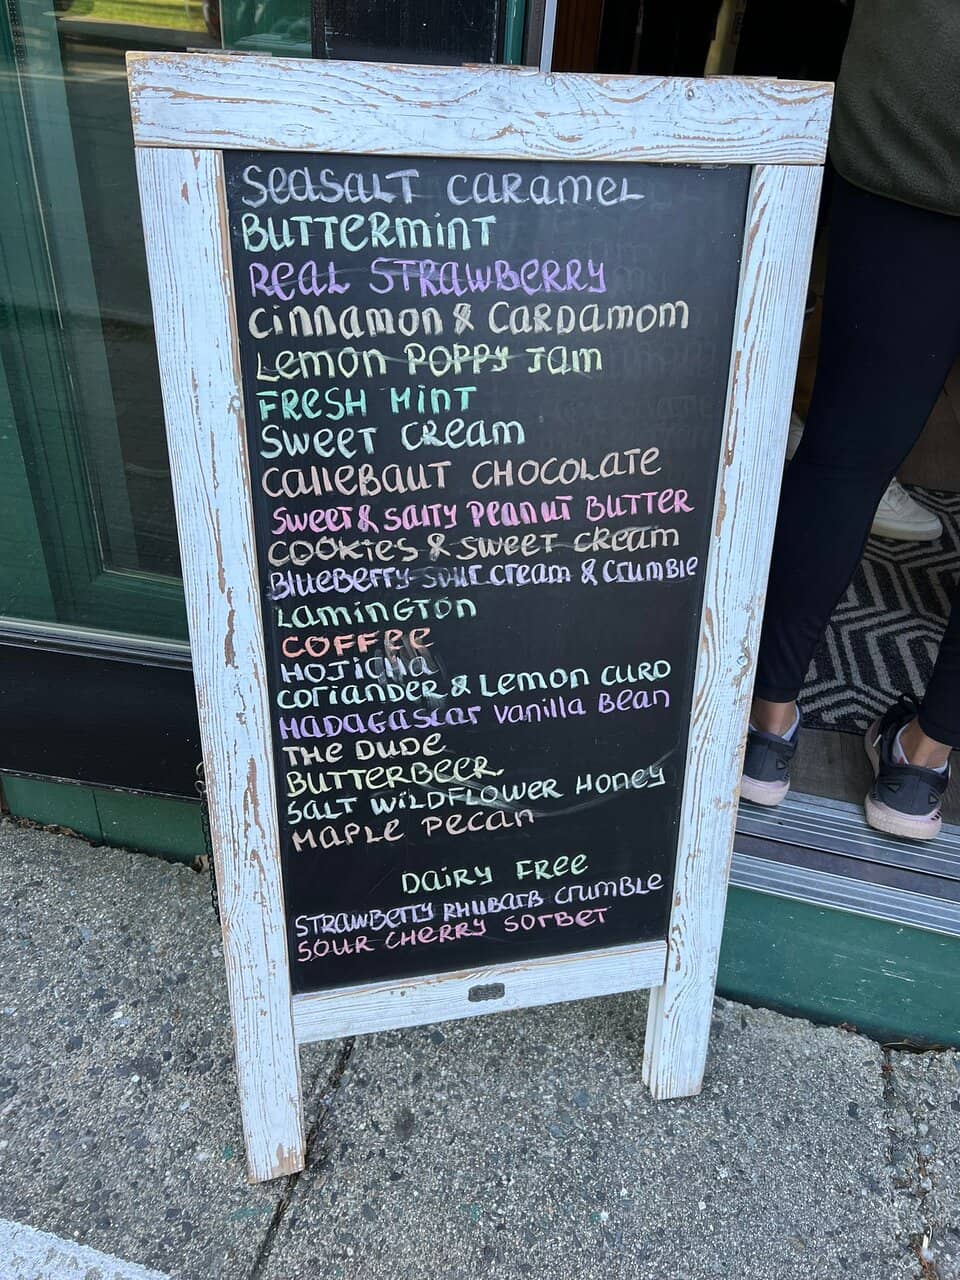 SEASALT CARAMEL
BUTTERMINT
REAL STRAWBERRY
CINNAMON & CARDAMOM
LEMON POPPY JAM
FRESH MINT
SWEET CREAM
CALLEBAUT CHOCOLATE
SWEET & SALTY PEANUT BUTTER
COOKIES & SWEET CREAM
BLUEBERRY SOUR CREAM & CRUMBLE
LAMINGTON
COFFEE
HOJICHA
CORIANDER & LEMON CURD
MADAGASCAR VANILLA BEAN
THE DUDE
BUTTERBEER
SALT WILDFLOWER HONEY
MAPLE PECAN
DAIRY FREE
STRAWBERRY RHUBARB CRUMBLE
SOUR CHERRY SORBET